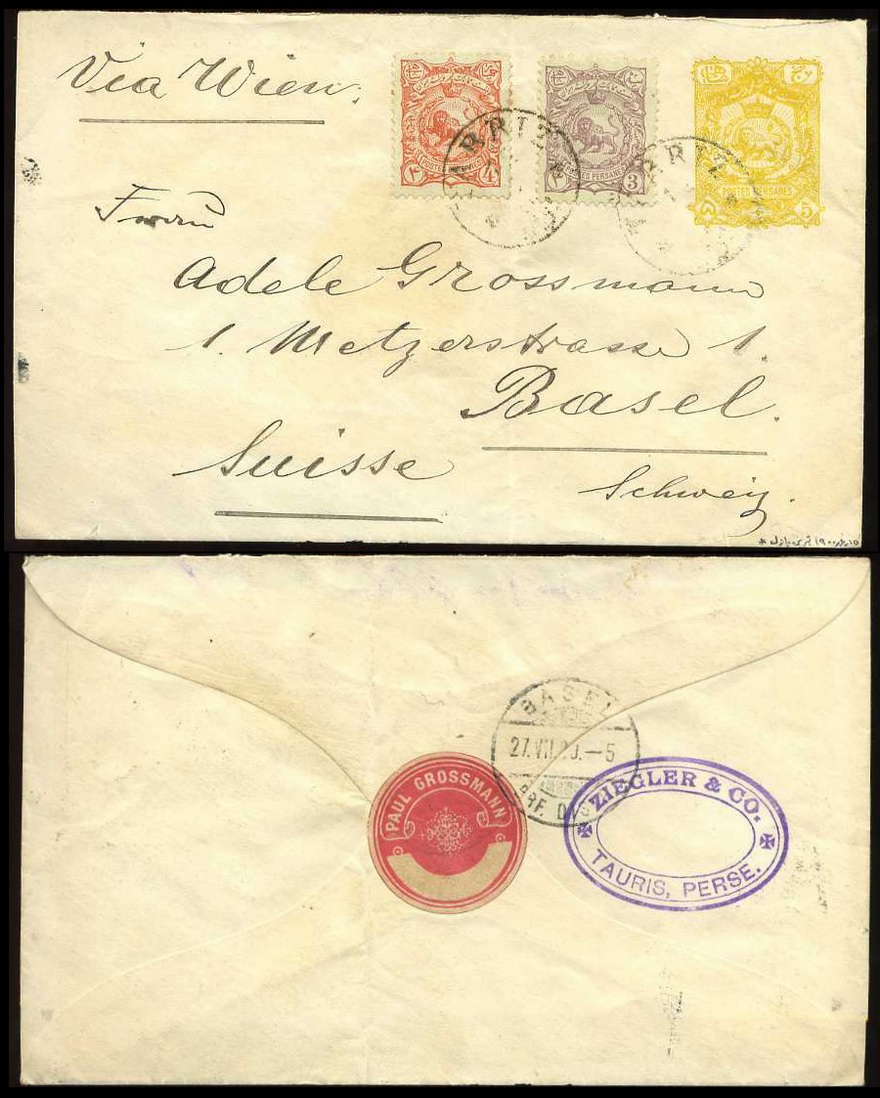 Via Wien.
POSTES PERSANES
۴ 4
POSTES PERSANES
۳ 3
POSTES PERSANES
۵ 5
Frau
Adele Grossmann
1. Metzerstrasse 1.
Basel.
Suisse
Schweiz.
BASEL
27.VII. —5
BRF. DIS
PAUL GROSSMANN
ZIEGLER & CO.
TAURIS, PERSE.